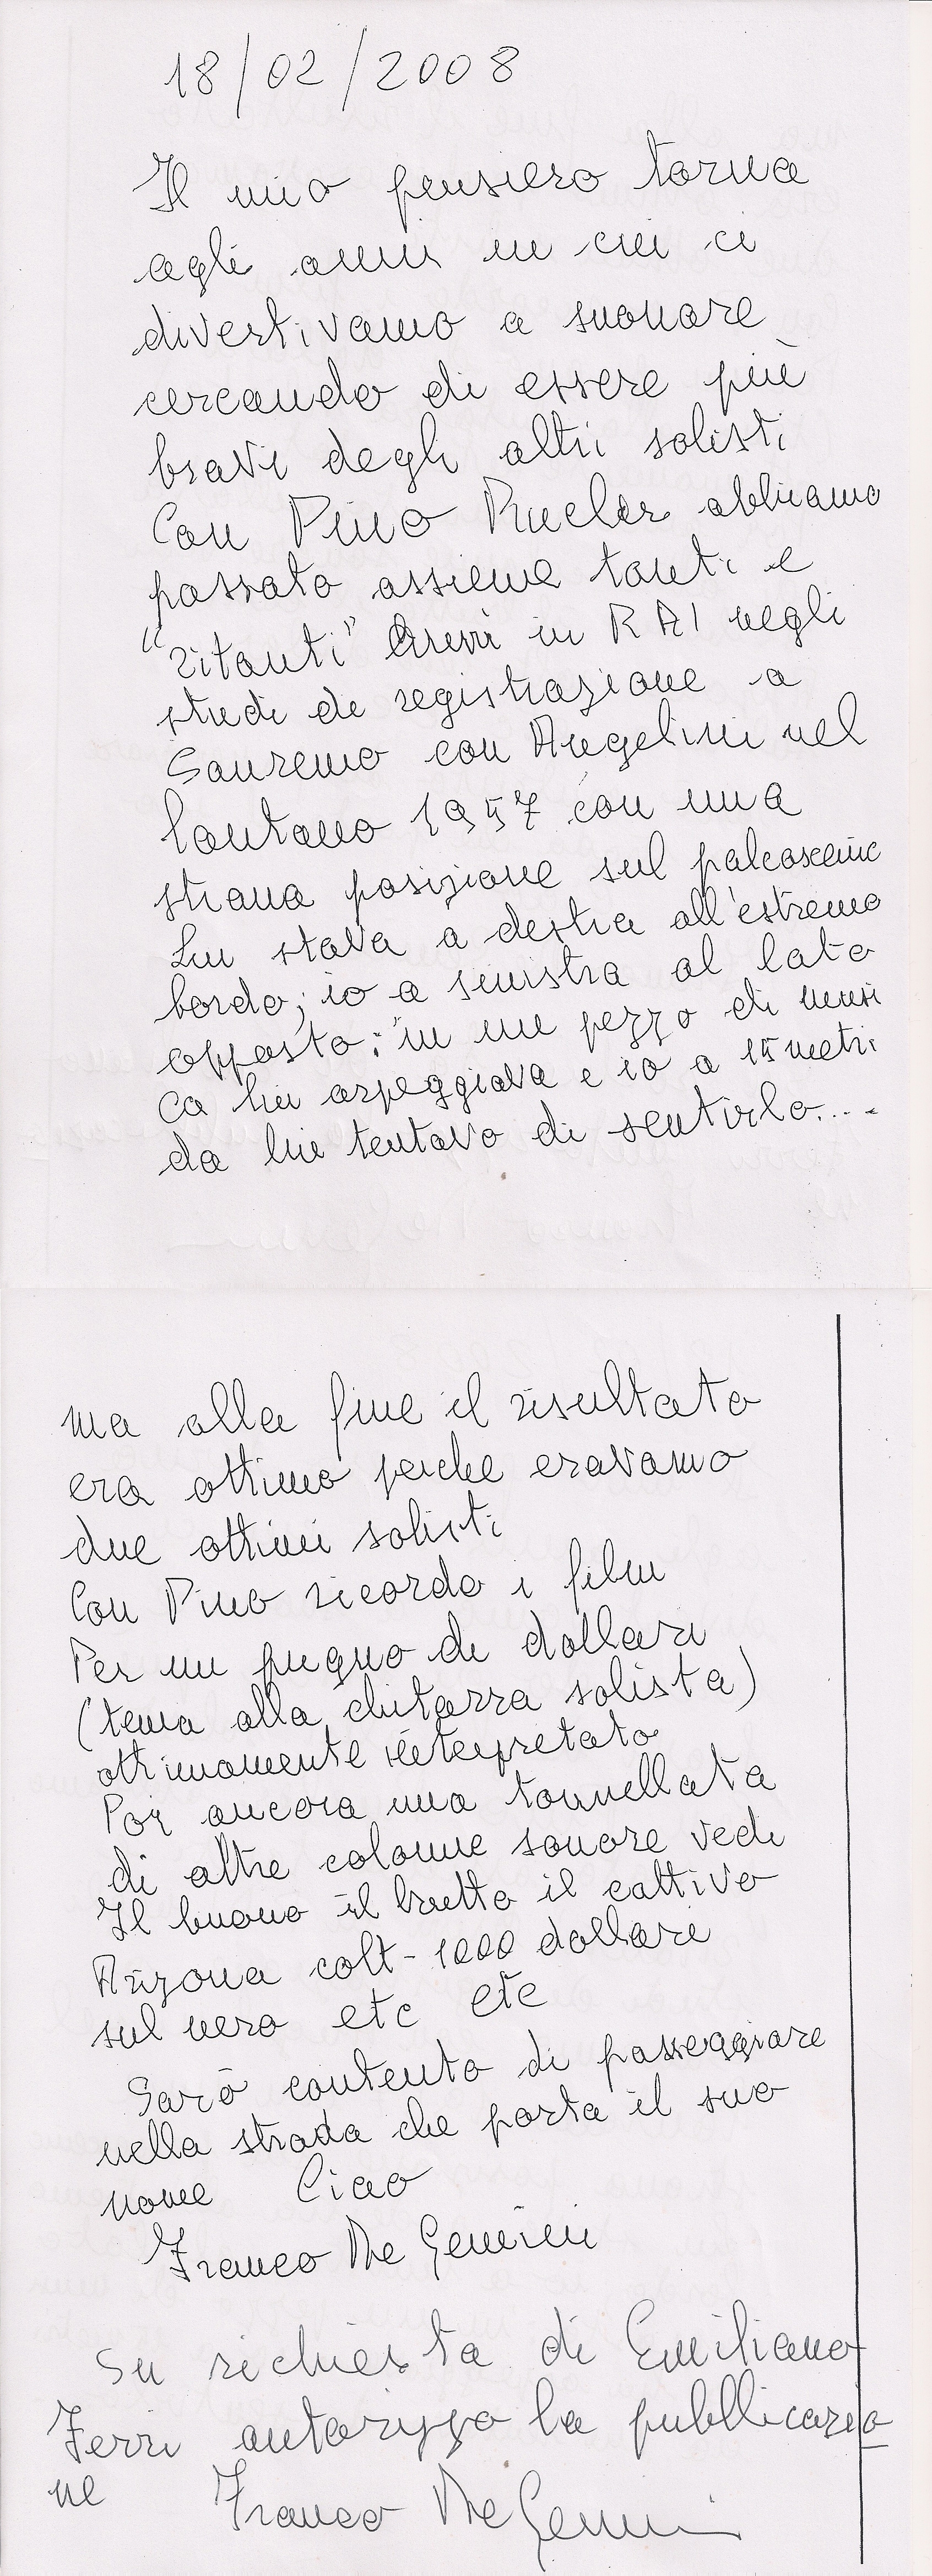 18/02/2008
Il mio pensiero torna
agli anni in cui ci
divertivamo a suonare
cercando di essere più
bravi degli altri solisti
Con Pino Rucher abbiamo
passato assieme tanti e
"ritanti" brevi in RAI negli
studi di registrazione a
Sanremo con Angelini nel
lontano 1957 con una
strana posizione sul palcoscenic
Lui stava a destra all'estremo
bordo; io a sinistra al lato
opposto: in un pezzo di musi
ca lui arpeggiava e io a 15 metri
da lui tentavo di sentirlo....
ma alla fine il risultato
era ottimo perche eravamo
due ottimi solisti
Con Pino ricordo i film
Per un pugno di dollari
(tema alla chitarra solista)
ottimamente interpretato
Poi ancora una tonnellata
di altre colonne sonore vedi
Il buono il brutto il cattivo
Arizona colt - 1000 dollari
sul nero etc etc
Sarò contento di passeggiare
nella strada che porta il suo
nome Ciao
Franco De Gemini
Su richiesta di Emiliano
Ferri autorizzo la pubblicazio
ne Franco De Gemini